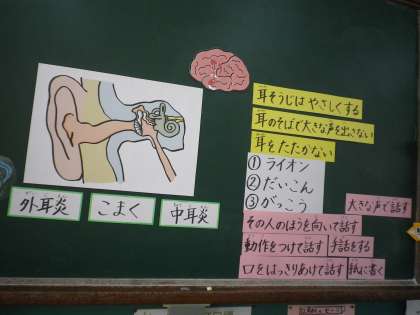 外耳炎
こまく
中耳炎
耳そうじは やさしくする
耳のそばで大きな声を出さない
耳をたたかない
① ライオン
② だいこん
③ がっこう
大きな声で話す
その人のほうを向いて話す
動作をつけて話す 手話をする
口をはっきりあけて話す 紙に書く